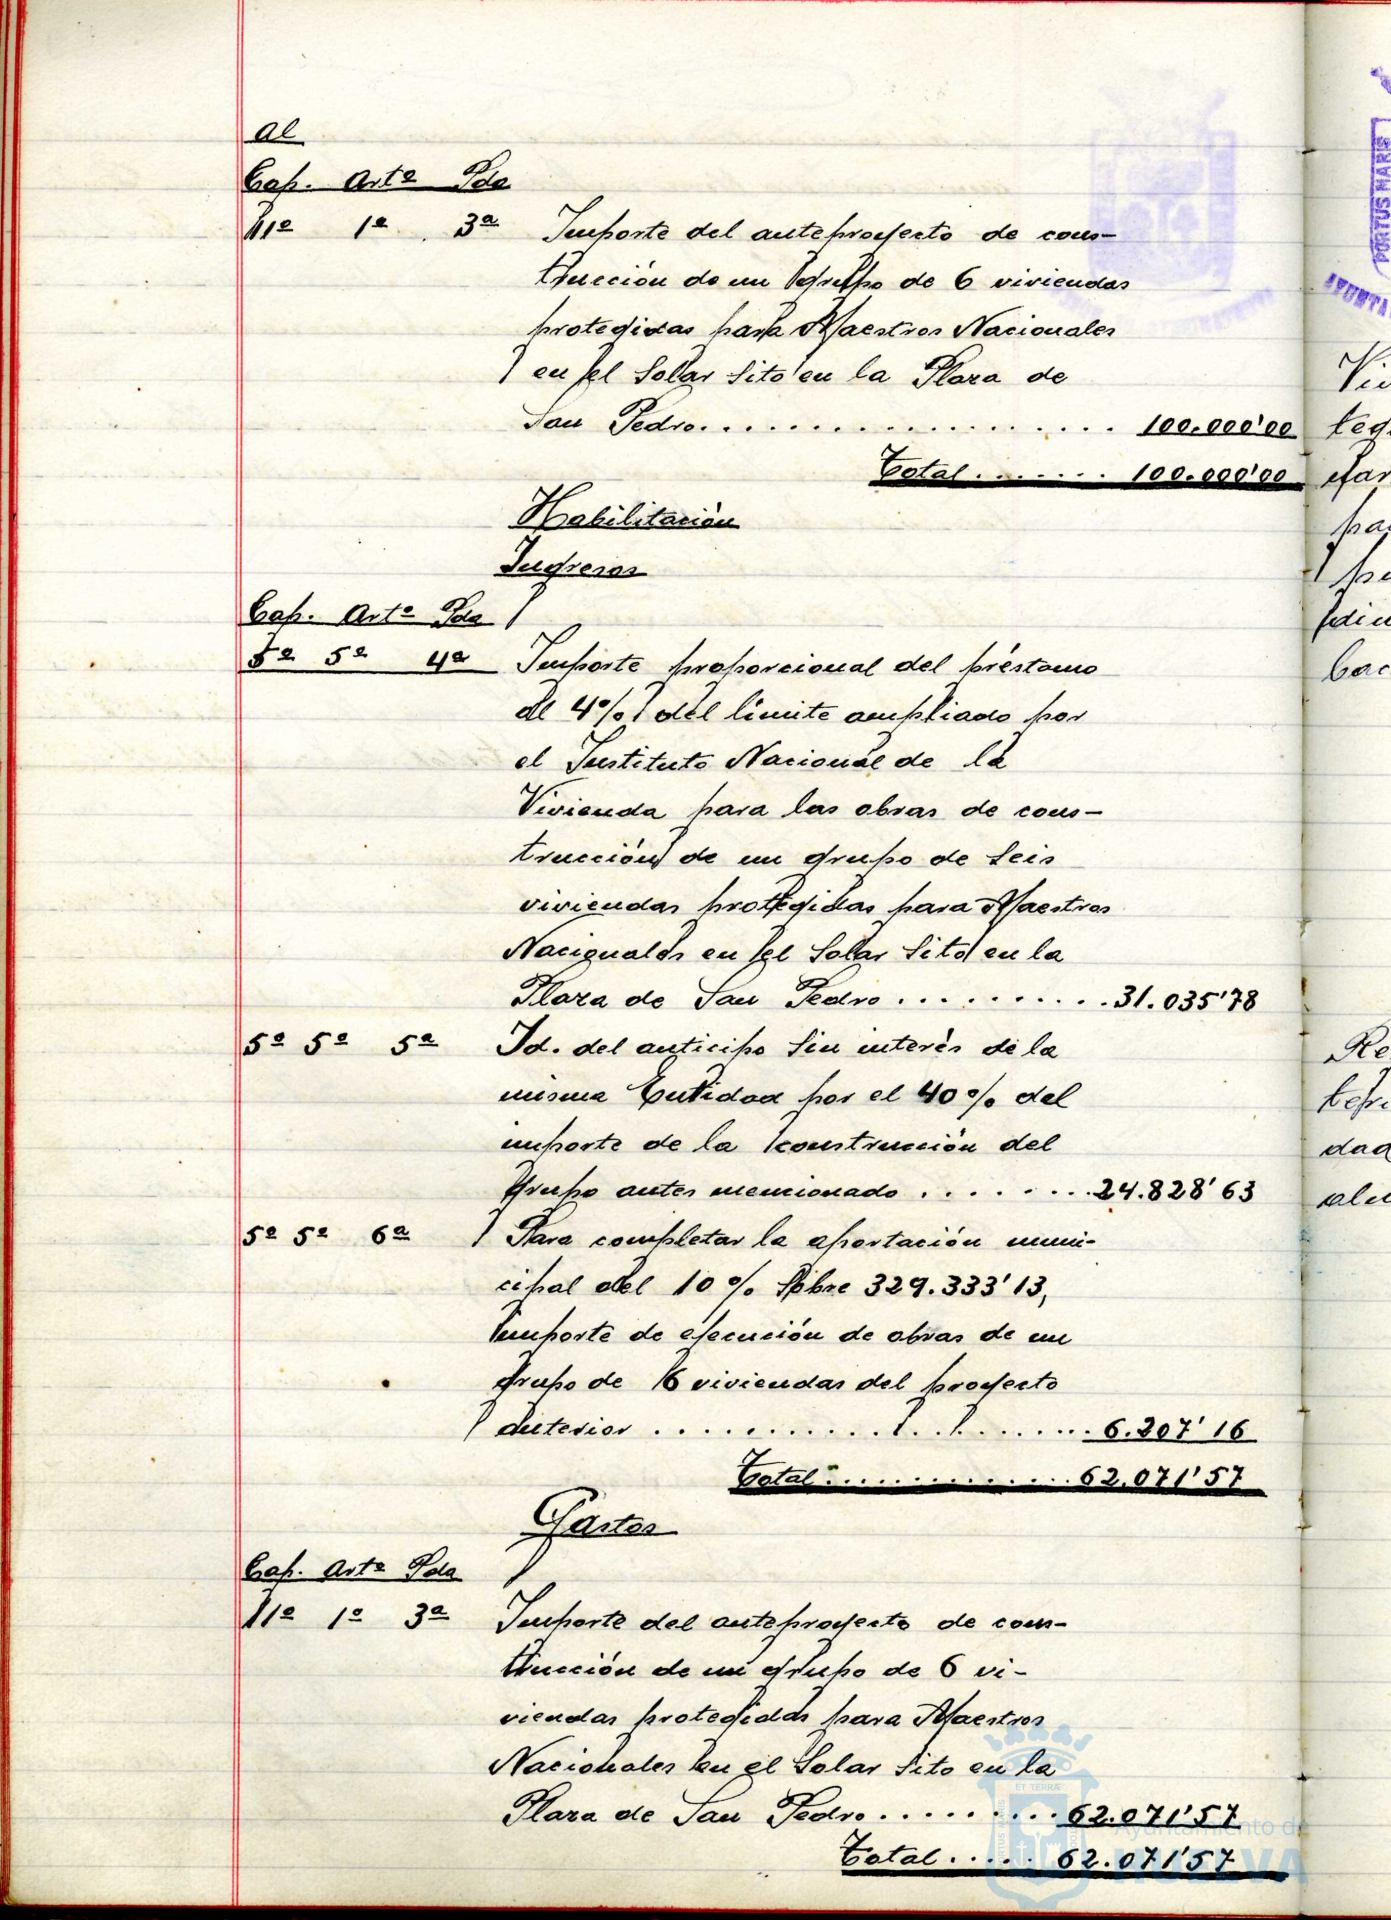 al
Cap. Artº Pda
11º 1º 3ª Importe del anteproyecto de cons-
trucción de un grupo de 6 viviendas
protegidas para Maestros Nacionales
en el Solar Sito en la Plaza de
San Pedro. . . . . . . . . . . . . . . . . . . 100.000'00
Total . . . . . . . 100.000'00
Habilitación
Ingresos
Cap. Artº Pda
5º 5º 4ª Importe proporcional del préstamo
al 4% del límite ampliado por
el Instituto Nacional de la
Vivienda para las obras de cons-
trucción de un grupo de Seis
viviendas protegidas para Maestros
Nacionales en el Solar Sito en la
Plaza de San Pedro . . . . . . . . . . 31.035'78
5º 5º 5ª Id. del anticipo Sin interés de la
misma Entidad por el 40% del
importe de la construcción del
grupo antes mencionado . . . . . . . . 24.828'63
5º 5º 6ª Para completar la aportación muni-
cipal del 10% Sobre 329.333'13,
importe de ejecución de obras de un
grupo de 6 viviendas del proyecto
anterior . . . . . . . . . . . . . . . . . . . . 6.207'16
Total . . . . . . . . . . . . . 62.071'57
Gastos
Cap. Artº Pda
11º 1º 3ª Importe del anteproyecto de cons-
trucción de un grupo de 6 vi-
viendas protegidas para Maestros
Nacionales en el Solar Sito en la
Plaza de San Pedro . . . . . . . . . 62.071'57
Total . . . . . 62.071'57
PORTUS MARIS
ET TERRÆ
Ayuntamiento de
HUELVA